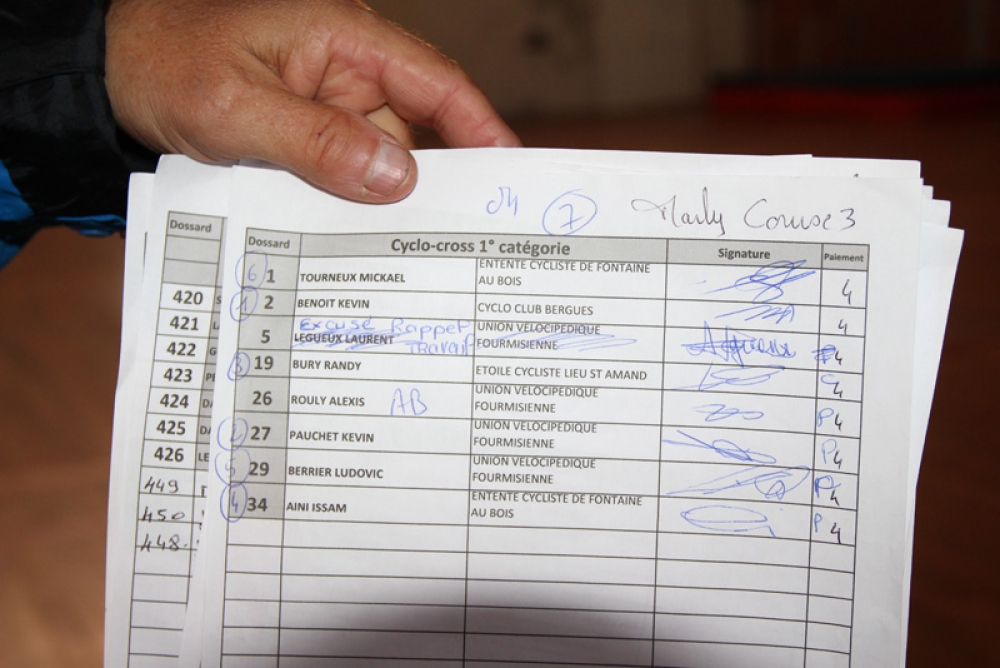 7 Marly Course 3
Dossard Cyclo-cross 1° catégorie Signature Paiement
6 1 TOURNEUX MICKAEL ENTENTE CYCLISTE DE FONTAINE
AU BOIS 4
1 2 BENOIT KEVIN CYCLO CLUB BERGUES 4
Excusé Rappel
5 LEGUEUX LAURENT Travail UNION VELOCIPEDIQUE
FOURMISIENNE 4
3 19 BURY RANDY ETOILE CYCLISTE LIEU ST AMAND 4
26 ROULY ALEXIS AB UNION VELOCIPEDIQUE
FOURMISIENNE P4
2 27 PAUCHET KEVIN UNION VELOCIPEDIQUE
FOURMISIENNE P4
5 29 BERRIER LUDOVIC UNION VELOCIPEDIQUE
FOURMISIENNE P4
4 34 AINI ISSAM ENTENTE CYCLISTE DE FONTAINE
AU BOIS P4
Dossard
420
421
422
423
424
425
426
449
450
448